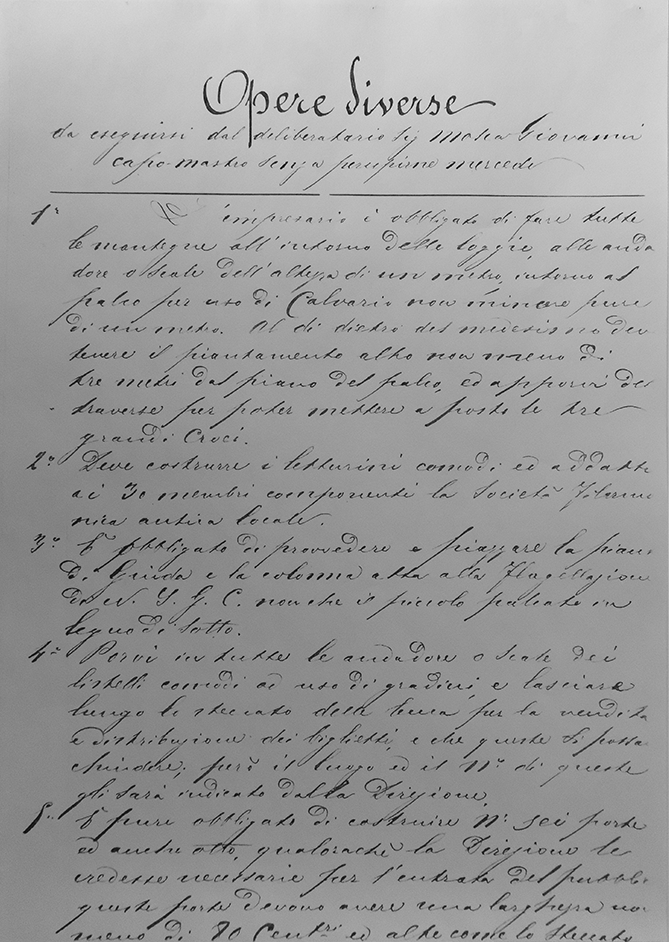 Opere diverse
da eseguirsi dal deliberatario Sig Mosca Giovanni
capo-mastro senza percepirne mercede
1° L'impresario è obbligato di fare tutte
le mantegne all'intorno delle loggie, alle anda
dore o scale dell'altezza di un metro, intorno al
palco per uso di Calvario non minore pure
di un metro. Al di dietro del medesimo de
tenere il piantamento alto non meno di
tre metri dal piano del palco, ed apporvi del
traverse per poter mettere a posto le tre
grandi Croci.
2° Deve costrurre i letturini comodi ed addatta
ai 30 membri componenti la Società Filarmo
nica antica locale.
3° È obbligato di provvedere e piazzare la pian
di Giuda e la colonna atta alla Flagellazion
di N. S. G. C. nonchè il piccolo palcato in
legno di sotto.
4° Porvi in tutte le andadore o scale dei
listelli comodi ad uso di gradini, e lasciare
lungo lo steccato delle per la vendita
e distribuzione dei biglietti, e che queste si possa
chiudere; però il luogo ed il N° di queste
gli sarà indicato dalla Direzione.
5° È pure obbligato di costruire N° sei porte
ed anche otto, qualorachè la Direzione le
credesse necessarie per l'entrata del pubbli
queste porte devono avere una larghezza no
meno di 80 Centri ed alte come lo steccato